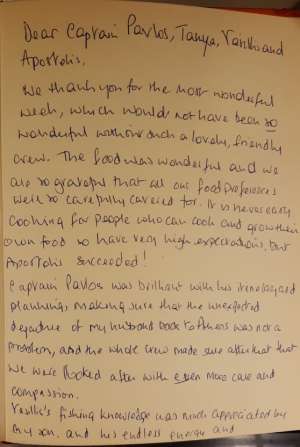 Dear Captain Pavlos, Tanya, Vasilis and
Apostolis,
We thank you for the most wonderful
week, which would not have been so
wonderful without such a lovely, friendly
crew. The food was wonderful and we
are so grateful that all our food preferences
were so carefully catered for. It is never easy
cooking for people who can cook and grow their
own food so have very high expectations, but
Apostolis succeeded!
Captain Pavlos was brilliant with his itinerary and
planning, making sure that the unexpected
departure of my husband back to Athens was not a
problem, and the whole crew made sure after that that
we were looked after with even more care and
compassion.
Vasilis's fishing knowledge was much appreciated by
my son. and his endless energy and